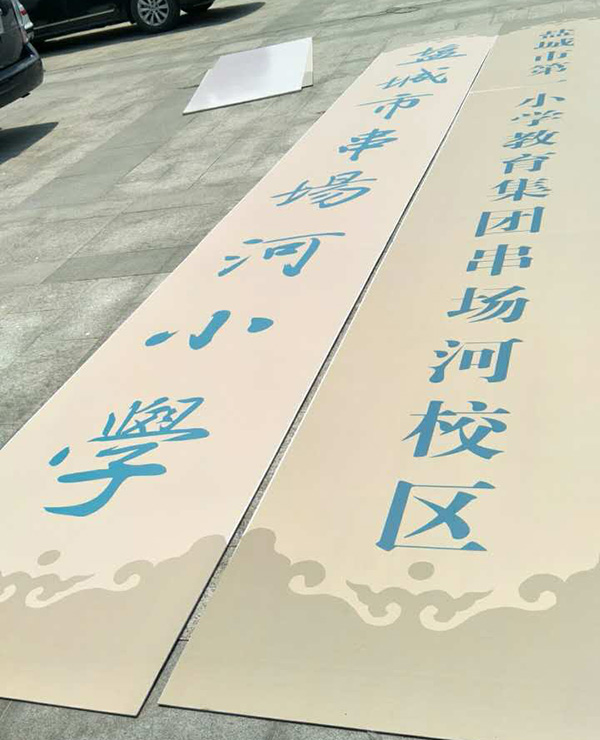 盐城市串場河小學
盐城市第一小学教育集团串场河校区